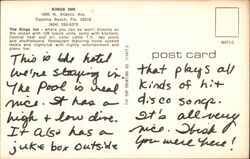 KINGS INN
1000 N. Atlantic Ave.
Daytona Beach, Fla. 32018
(904) 255-
The Kings Inn - where you can be won! Directly on
the ocean with 128 luxury units, some with kitchens
Central heat and air, color cable T.V., two pools
and shuffleboard. Restaurant featuring home cooked
meals and nightclub with nightly entertainment and
piano bar.
This is the hotel
we're staying in.
The Pool is real
nice. It has a
high & low dive.
It also has a
juke box outside
post card
That plays all
kinds of hit
disco songs.
It's all very
nice. Wish
you were here!